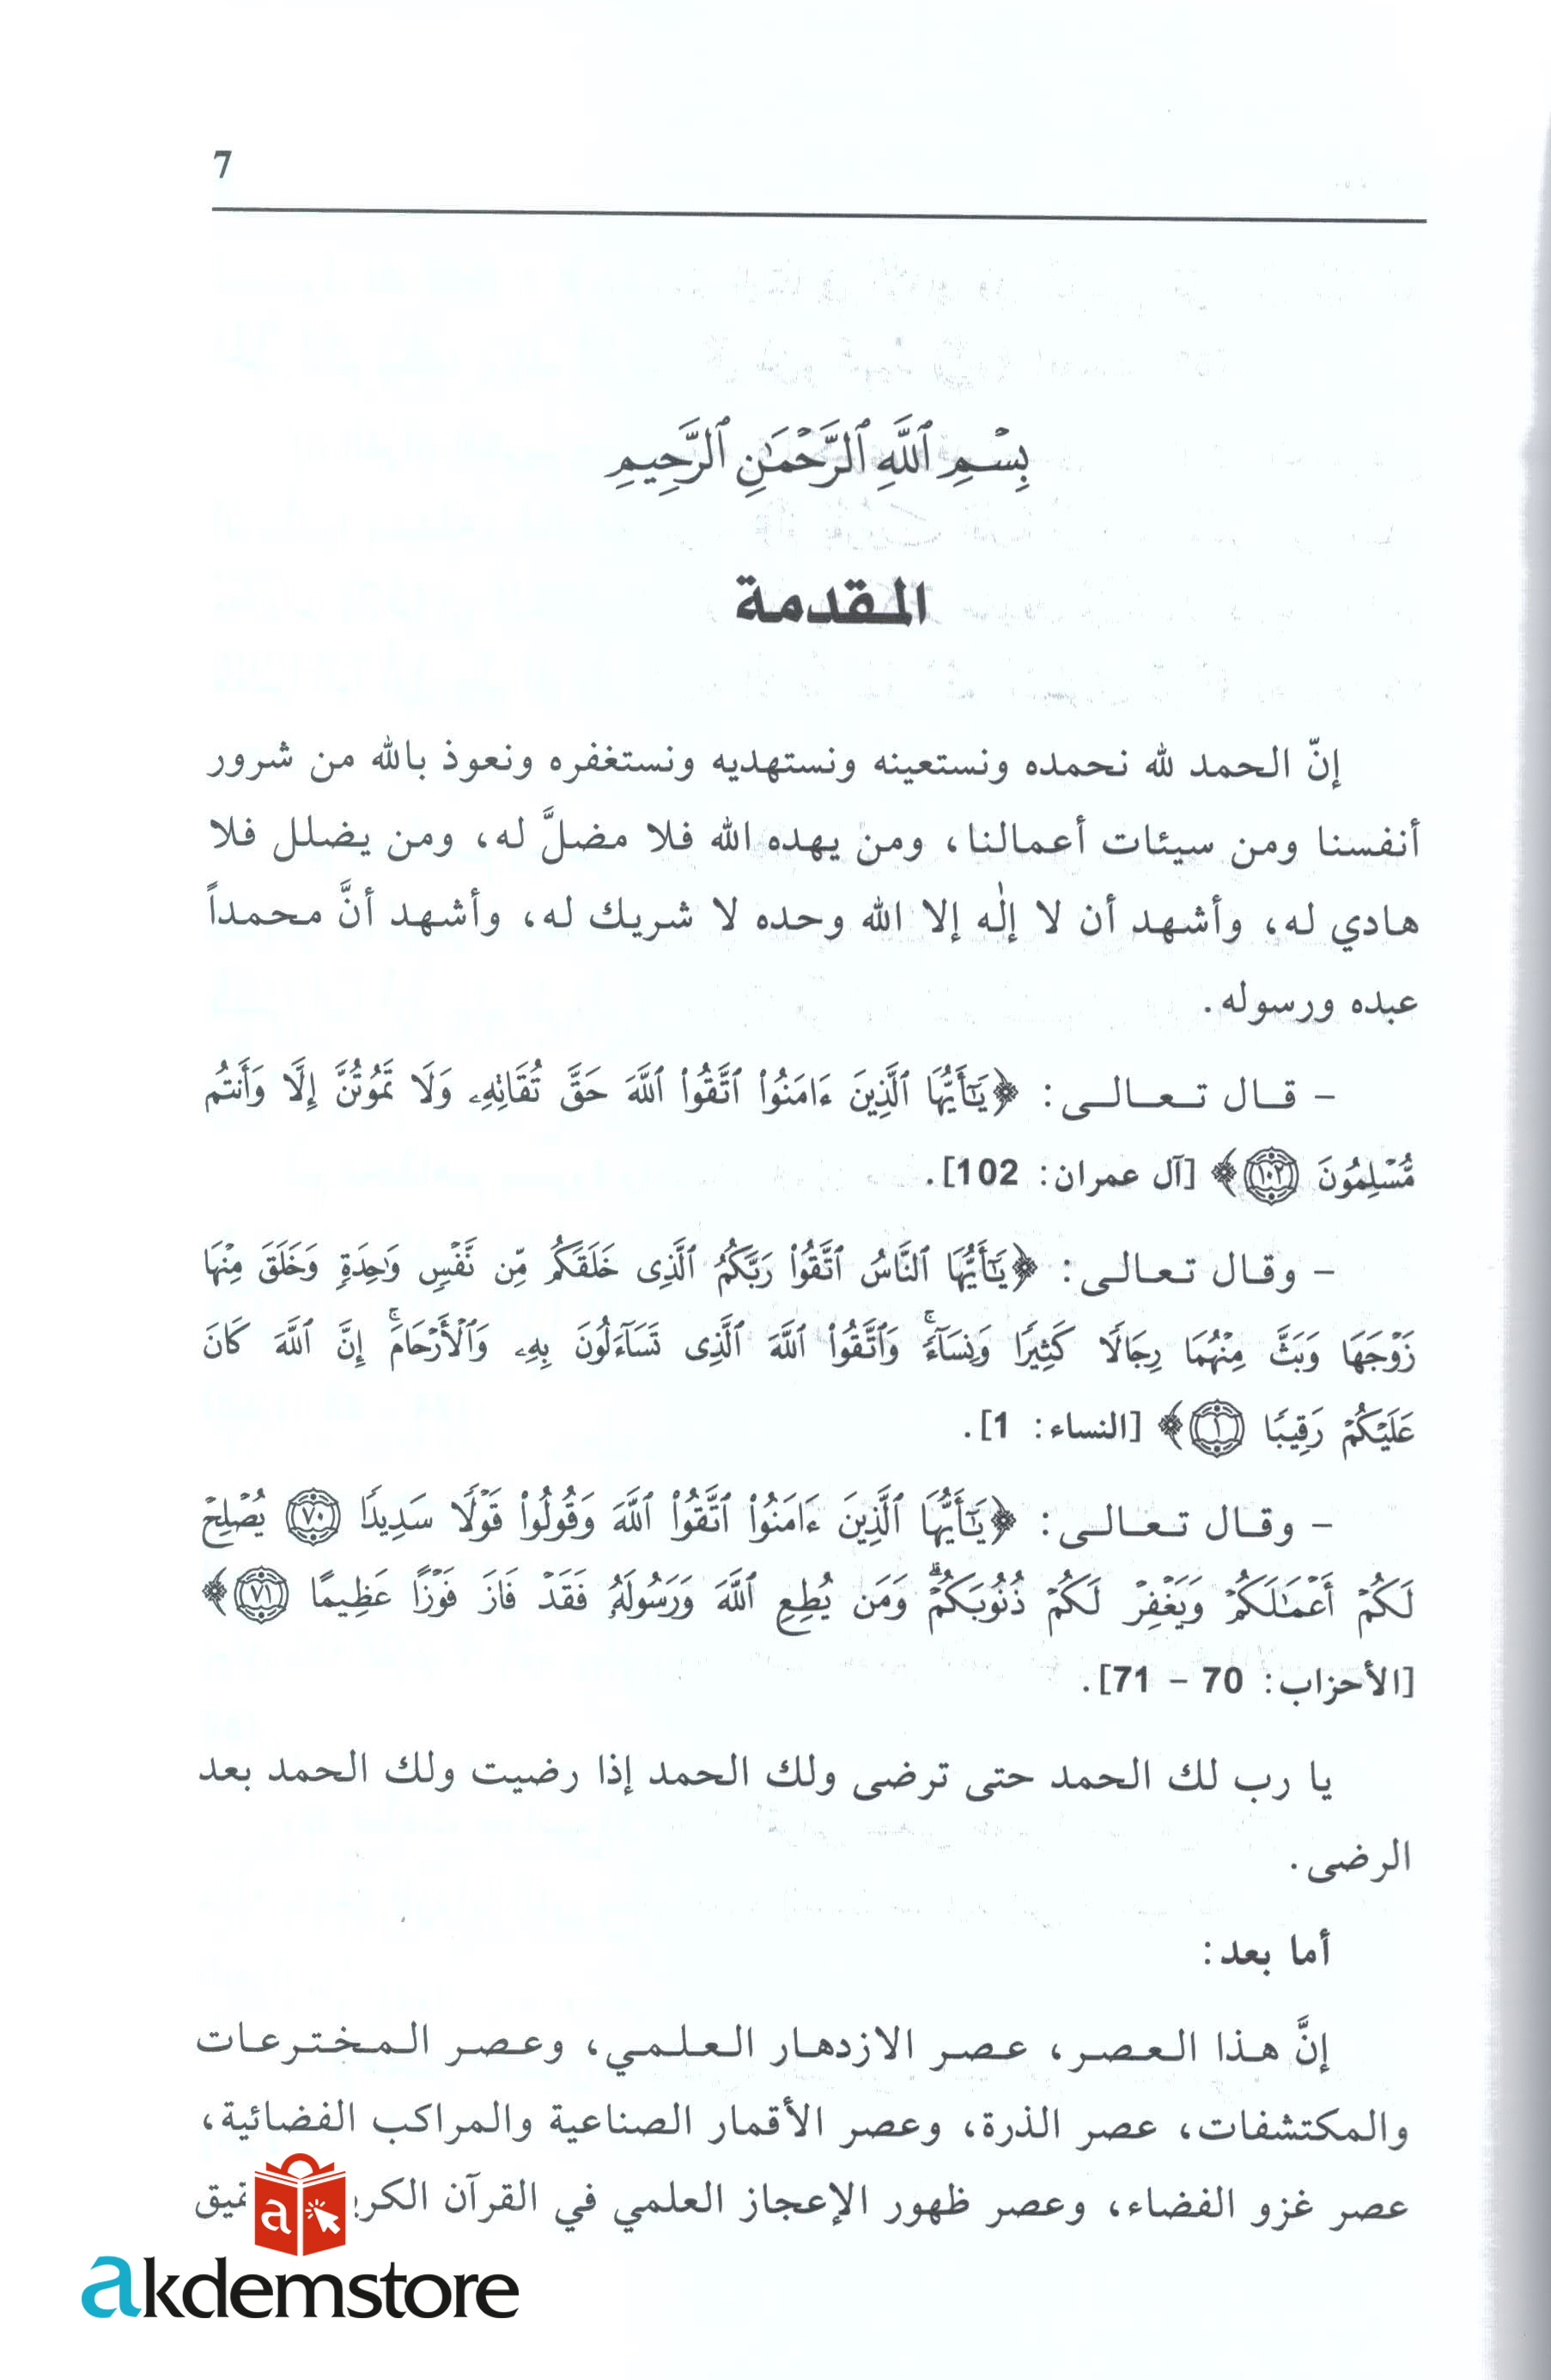 7
بِسْمِ ٱللَّهِ ٱلرَّحْمَـٰنِ ٱلرَّحِيمِ
المقدمة
إنّ الحمد لله نحمده ونستعينه ونستهديه ونستغفره ونعوذ بالله من شرور
أنفسنا ومن سيئات أعمالنا، ومن يهده الله فلا مضلَّ له، ومن يضلل فلا
هادي له، وأشهد أن لا إلٰه إلا الله وحده لا شريك له، وأشهد أنَّ محمداً
عبده ورسوله.
– قال تعالى: ﴿يَـٰٓأَيُّهَا ٱلَّذِينَ ءَامَنُوا۟ ٱتَّقُوا۟ ٱللَّهَ حَقَّ تُقَاتِهِۦ وَلَا تَمُوتُنَّ إِلَّا وَأَنتُم
مُّسْلِمُونَ ١٠٢﴾ [آل عمران: 102].
– وقال تعالى: ﴿يَـٰٓأَيُّهَا ٱلنَّاسُ ٱتَّقُوا۟ رَبَّكُمُ ٱلَّذِى خَلَقَكُم مِّن نَّفْسٍ وَٰحِدَةٍ وَخَلَقَ مِنْهَا
زَوْجَهَا وَبَثَّ مِنْهُمَا رِجَالًا كَثِيرًا وَنِسَآءً ۚ وَٱتَّقُوا۟ ٱللَّهَ ٱلَّذِى تَسَآءَلُونَ بِهِۦ وَٱلْأَرْحَامَ ۚ إِنَّ ٱللَّهَ كَانَ
عَلَيْكُمْ رَقِيبًا ١﴾ [النساء: 1].
– وقال تعالى: ﴿يَـٰٓأَيُّهَا ٱلَّذِينَ ءَامَنُوا۟ ٱتَّقُوا۟ ٱللَّهَ وَقُولُوا۟ قَوْلًا سَدِيدًا ٧٠ يُصْلِحْ
لَكُمْ أَعْمَـٰلَكُمْ وَيَغْفِرْ لَكُمْ ذُنُوبَكُمْ ۗ وَمَن يُطِعِ ٱللَّهَ وَرَسُولَهُۥ فَقَدْ فَازَ فَوْزًا عَظِيمًا ٧١﴾
[الأحزاب: 70 – 71].
يا رب لك الحمد حتى ترضى ولك الحمد إذا رضيت ولك الحمد بعد
الرضى.
أما بعد:
إنَّ هذا العصر، عصر الازدهار العلمي، وعصر المخترعات
والمكتشفات، عصر الذرة، وعصر الأقمار الصناعية والمراكب الفضائية،
عصر غزو الفضاء، وعصر ظهور الإعجاز العلمي في القرآن
a
akdemstore